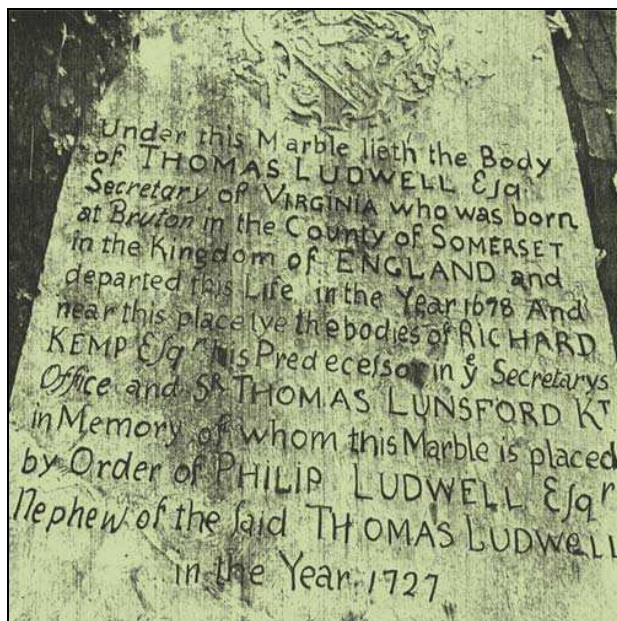 Under this Marble lieth the Body
of THOMAS LUDWELL Eſqr
Secretary of VIRGINIA who was born
at Bruton in the County of SOMERSET
in the Kingdom of ENGLAND and
departed this Life in the Year 1678 And
near this place lye the bodies of RICHARD
KEMP Eſqr his Predeceſsor in ye Secretarys
Office and SR THOMAS LUNSFORD KT
in Memory of whom this Marble is placed
by Order of PHILIP LUDWELL Eſqr
Nephew of the ſaid THOMAS LUDWELL
in the Year 1727